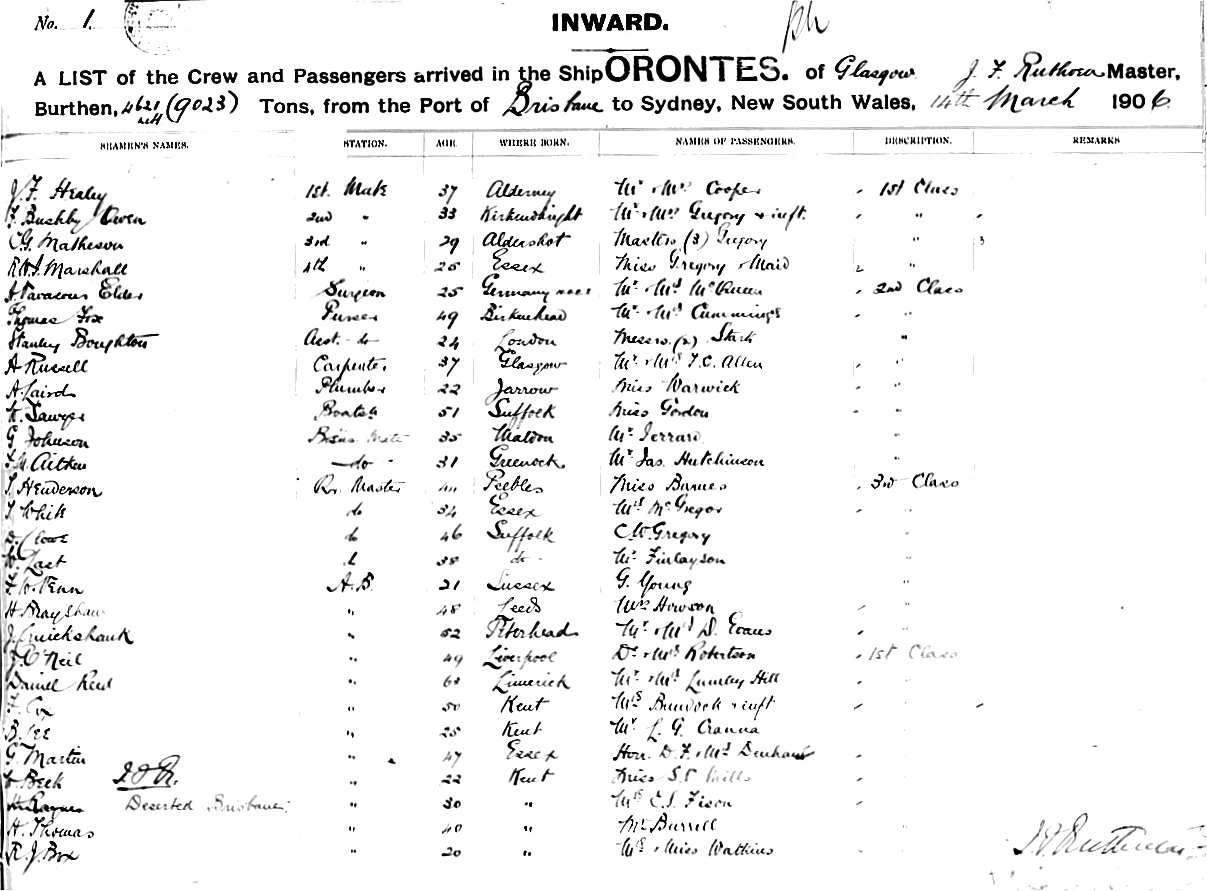 No. 1.
INWARD.
A LIST of the Crew and Passengers arrived in the Ship ORONTES. of Glasgow J. F. Ruthven Master,
Burthen, 4621 nett (9023) Tons, from the Port of Brisbane to Sydney, New South Wales, 14th March 1906
SEAMEN'S NAMES. STATION. AGE. WHERE BORN. NAMES OF PASSENGERS. DESCRIPTION. REMARKS
J. F. Healey 1st. Mate 37 Alderney Mr & Mrs Cooper 1st Class
F. Bushby Owen 2nd " 33 Mr & Mrs Gregory & inft. "
C. G. Matheson 3rd " 29 Aldershot Masters (3) Gregory " 3
Marshall 4th " 25 Essex Miss Gregory & Maid "
Elder Surgeon 25 Germany Mr & Mrs McQueen 2nd Class
Thomas Fox Purser 49 Birkenhead Mr & Mrs Cummings "
Stanley Boughton Asst. do 24 London Messrs. (2) Stark "
A Russell Carpenter 37 Glasgow Mr & Mrs T. C. Allen "
A. Laird Plumber 22 Jarrow Miss Warwick "
Sawyer 51 Suffolk Miss Gordon "
G. Johnson Mate 35 Maldon Mr Jerrard "
Aitken do 31 Greenock Mr Jas. Hutchinson "
Henderson Qr. Master Peebles Miss Barnes 3rd Class
White do 34 Essex Mrs McGregor "
do 46 Suffolk C. W. Gregory "
Last 38 do Mr Finlayson "
F. W. Penn A.B. 21 Sussex G. Young "
H. Mayshaw " 48 Leeds Mrs Howson "
J. Cruickshank " 52 Peterhead Mr & Mrs D. Evans "
J. O'Neil " 49 Liverpool Dr & Mrs Robertson 1st Class
Daniel Reed " Limerick Mr & Mrs Lumley Hill "
F. Cox " 50 Kent Mrs & inft "
B. Lee " 25 Kent Mr L. G. Cranna "
G. Martin " 47 Essex Hon. D. F. & Mrs Denham "
Beck " 22 Kent Miss Mills "
Deserted Brisbane. " 30 " Mrs E. S. Fison "
H. Thomas " 40 " Mr Burrell "
R. J. Box " 20 " Mrs & Miss Watkins "